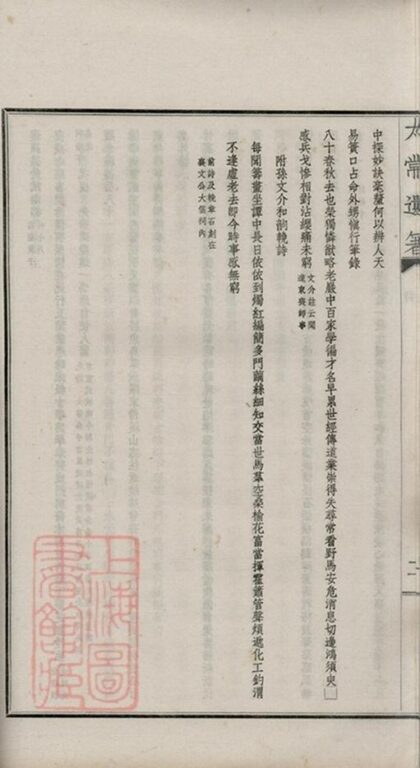 太常遺箸
中探妙訣豪釐何以辨人天
易簀口占命外甥慎行筆錄
八十春秋去也榮獨憐猷略老嚴中百家學徧才名早累世經傳道業崇得失尋常看野馬安危消息切邊鴻須臾
感兵戈慘相對沾纓痛未窮
文介註云聞
遼東喪師事
附孫文介和韵輓詩
每聞籌畫坐譚中長日依依到燭紅編簡多門繭絲細知交當世馬羣空桑榆花富當揮霍簫管聲煩進化工鈞渭
不逢虛老去即今時事感無窮
前詩及輓章石刻在
襄文公大宗祠內
二
上海圖書館藏